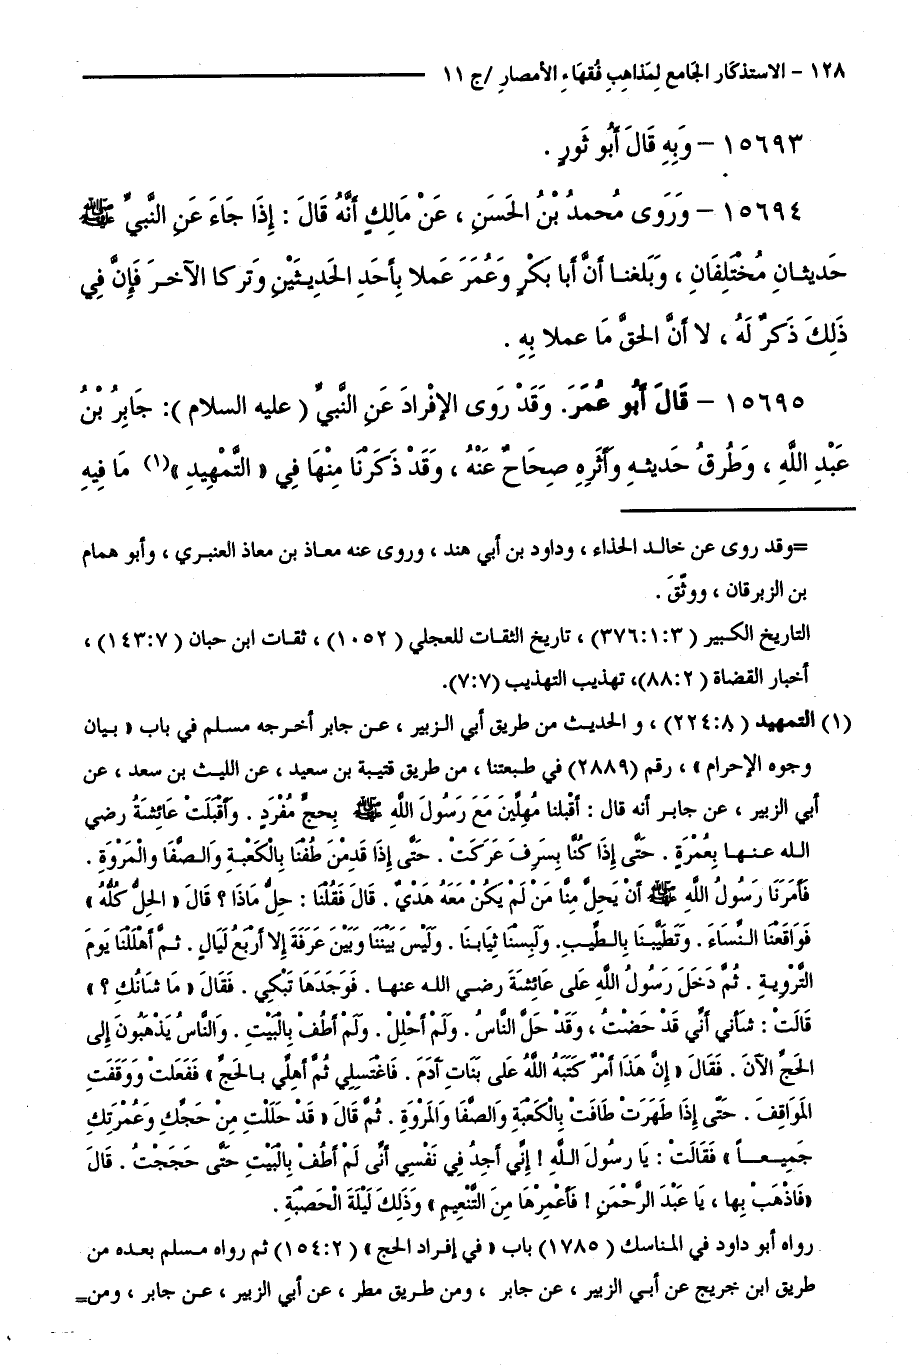 ١٢٨ - الاستذكار الجامع لمذاهب فقهاء الأمصار /ج ١١
١٥٦٩٣ - وَبِهِ قَالَ أَبُو ثَورٍ .
١٥٦٩٤ - وَرَوَى مُحمدُ بْنُ الحَسَنِ ، عَنْ مَالِكٍ أَنَّهُ قَالَ : إِذَا جَاءَ عَنِ النَّبيِّ ﷺ
حَديثـانِ مُخْتَلِفَانِ ، وَبَلغنـا أَنَّ أبا بَكْرٍ وَعُمَرَ عَملا بِأَحَدِ الحَدِيـثَيْنِ وَتَركـا الآخـرَ فَإِنَّ فِي
ذَلِكَ ذَكرٌ لَهُ ، لا أَنَّ الحَقَّ مَا عملا بِهِ .
١٥٦٩٥ - قَالَ أَبُو عُمَرَ. وَقَدْ رَوَى الإفْرادَ عَنِ النَّبيِّ ( عليه السلام ): جَابِرُ بْنُ
عَبْدِ اللَّهِ ، وَطُرقُ حَديثـهِ وَأَثَرِهِ صِحَاحٌ عَنْهُ ، وَقَدْ ذَكَرْنَا مِنْهَا فِي « التَّمْهِيدِ »(١) مَا فِيهِ
=وقد روى عن خالـد الحذاء ، وداود بن أبي هند ، وروى عنه معـاذ بن معاذ العنبري ، وأبو همام
بن الزبرقان ، ووثِّقَ .
التاريخ الكبير ( ٣٧٦:١:٣) ، تاريخ الثقات للعجلي ( ١٠٥٢) ، ثقـات ابن حبان ( ١٤٣:٧) ،
أخبار القضاة ( ٨٨:٢)، تهذيب التهذيب (٧:٧).
(١) التمهيد ( ٢٢٤:٨) ، و الحديـث من طريق أبي الزبير ، عـن جابر أخـرجه مسلـم في باب « بيان
وجوه الإحرام » ، رقم (٢٨٨٩) في طبعتنا ، من طريق قتيبة بن سعيد ، عن الليـث بن سعد ، عن
أبي الزبير ، عن جابـر أنه قال : أَقْبلنا مُهِلِّينَ مَعَ رَسُولَ اللَّهِ ﷺ بِحجٍّ مُفْرَدٍ . وَأَقْبَلَتْ عَائِشَةُ رضي
اللـه عنـهـا بِعُمْرَةٍ . حَتَّى إِذَا كُنَّا بِسَرِفَ عَرَكَتْ . حَتَّى إِذَا قَدِمْنَ طُفْنَا بِالْكَعْبـةِ وَالـصَّفَا والمَرْوَةِ .
فَأَمَرَنَا رَسُولُ اللَّهِ ﷺ أَنْ يَحِلَّ مِنَّا مَنْ لَمْ يَكُنْ مَعَهُ هَدْيٌ . قَالَ فَقُلْنَا : حِلُّ مَاذَا ؟ قَالَ « الحِلُّ كُلُّهُ »
فَوَاقَعْنَا النِّسَاءَ . وَتَطَيَّبـنَا بِالـطِّيبِ. وَلَبِسْنَا ثِيَابـنَا . وَلَيْسَ بَيْنَنَا وَبَيْنَ عَرَفَةَ إِلا أَرْبَعُ لَيَالٍ . ثـمَّ أَهْلَلْنَا يَومَ
التَّرْوِيـةِ . ثُمَّ دَخَلَ رَسُولُ اللَّهِ عَلى عَائِشَةَ رضـي اللـه عنهـا . فَوجَدَهَا تَبْكِي . فَقَالَ « مَا شَانُكِ ؟ »
قَالَتْ : شـأني أَنِّي قَدْ حَضْتُ ، وَقَدْ حَلَّ النَّاسُ . وَلَمْ أَحْلِلْ . وَلَمْ أَطُفْ بِالْبَيْتِ . وَالنَّاسُ يَذْهَبُونَ إِلى
الحَجِّ الآنَ . فَقَالَ « إِنَّ هَذَا أَمْرٌ كَتَبَهُ اللَّهُ عَلَى بَنَاتِ آدَمَ . فَاغْتَسِلِي ثُمَّ أَهِلِّي بـالحَجِّ » فَفَعَلتْ وَوَقَفَتِ
المَوَاقِفَ . حَتّى إِذَا طَهَرَتْ طَافَتْ بِالْكَعْبَةِ وَالصَّفَا وَالمَرْوَةِ . ثُمَّ قَالَ « قَدْ حَلَلْتِ مِنْ حَجِّكِ وَعُمْرَتِكِ
جَمِيـعــاً » فَقَالَتْ : يَا رسُولَ اللَّهِ ! إِنِّي أَجِدُ فِي نَفْسِي أَنِّى لَمْ أَطُفْ بِالْبَيْتِ حَتَّى حَجَجتُ . قَالَ
«فَاذْهَبْ بِها ، يَا عَبْدَ الرَّحْمَنِ ! فَأَعْمِرْهَا مِنَ التَّنْعِيمِ » وَذَلِكَ لَيْلَةَ الْحَصْبَةِ .
رواه أبو داود في المناسك ( ١٧٨٥) باب « في إفراد الحج » ( ١٥٤:٢) ثم رواه مسلم بعده من
طريق ابن جريج عن أبـي الزبير ، عن جابر ، ومن طـريق مطر ، عن أبي الزبير ، عـن جابر ، ومن=